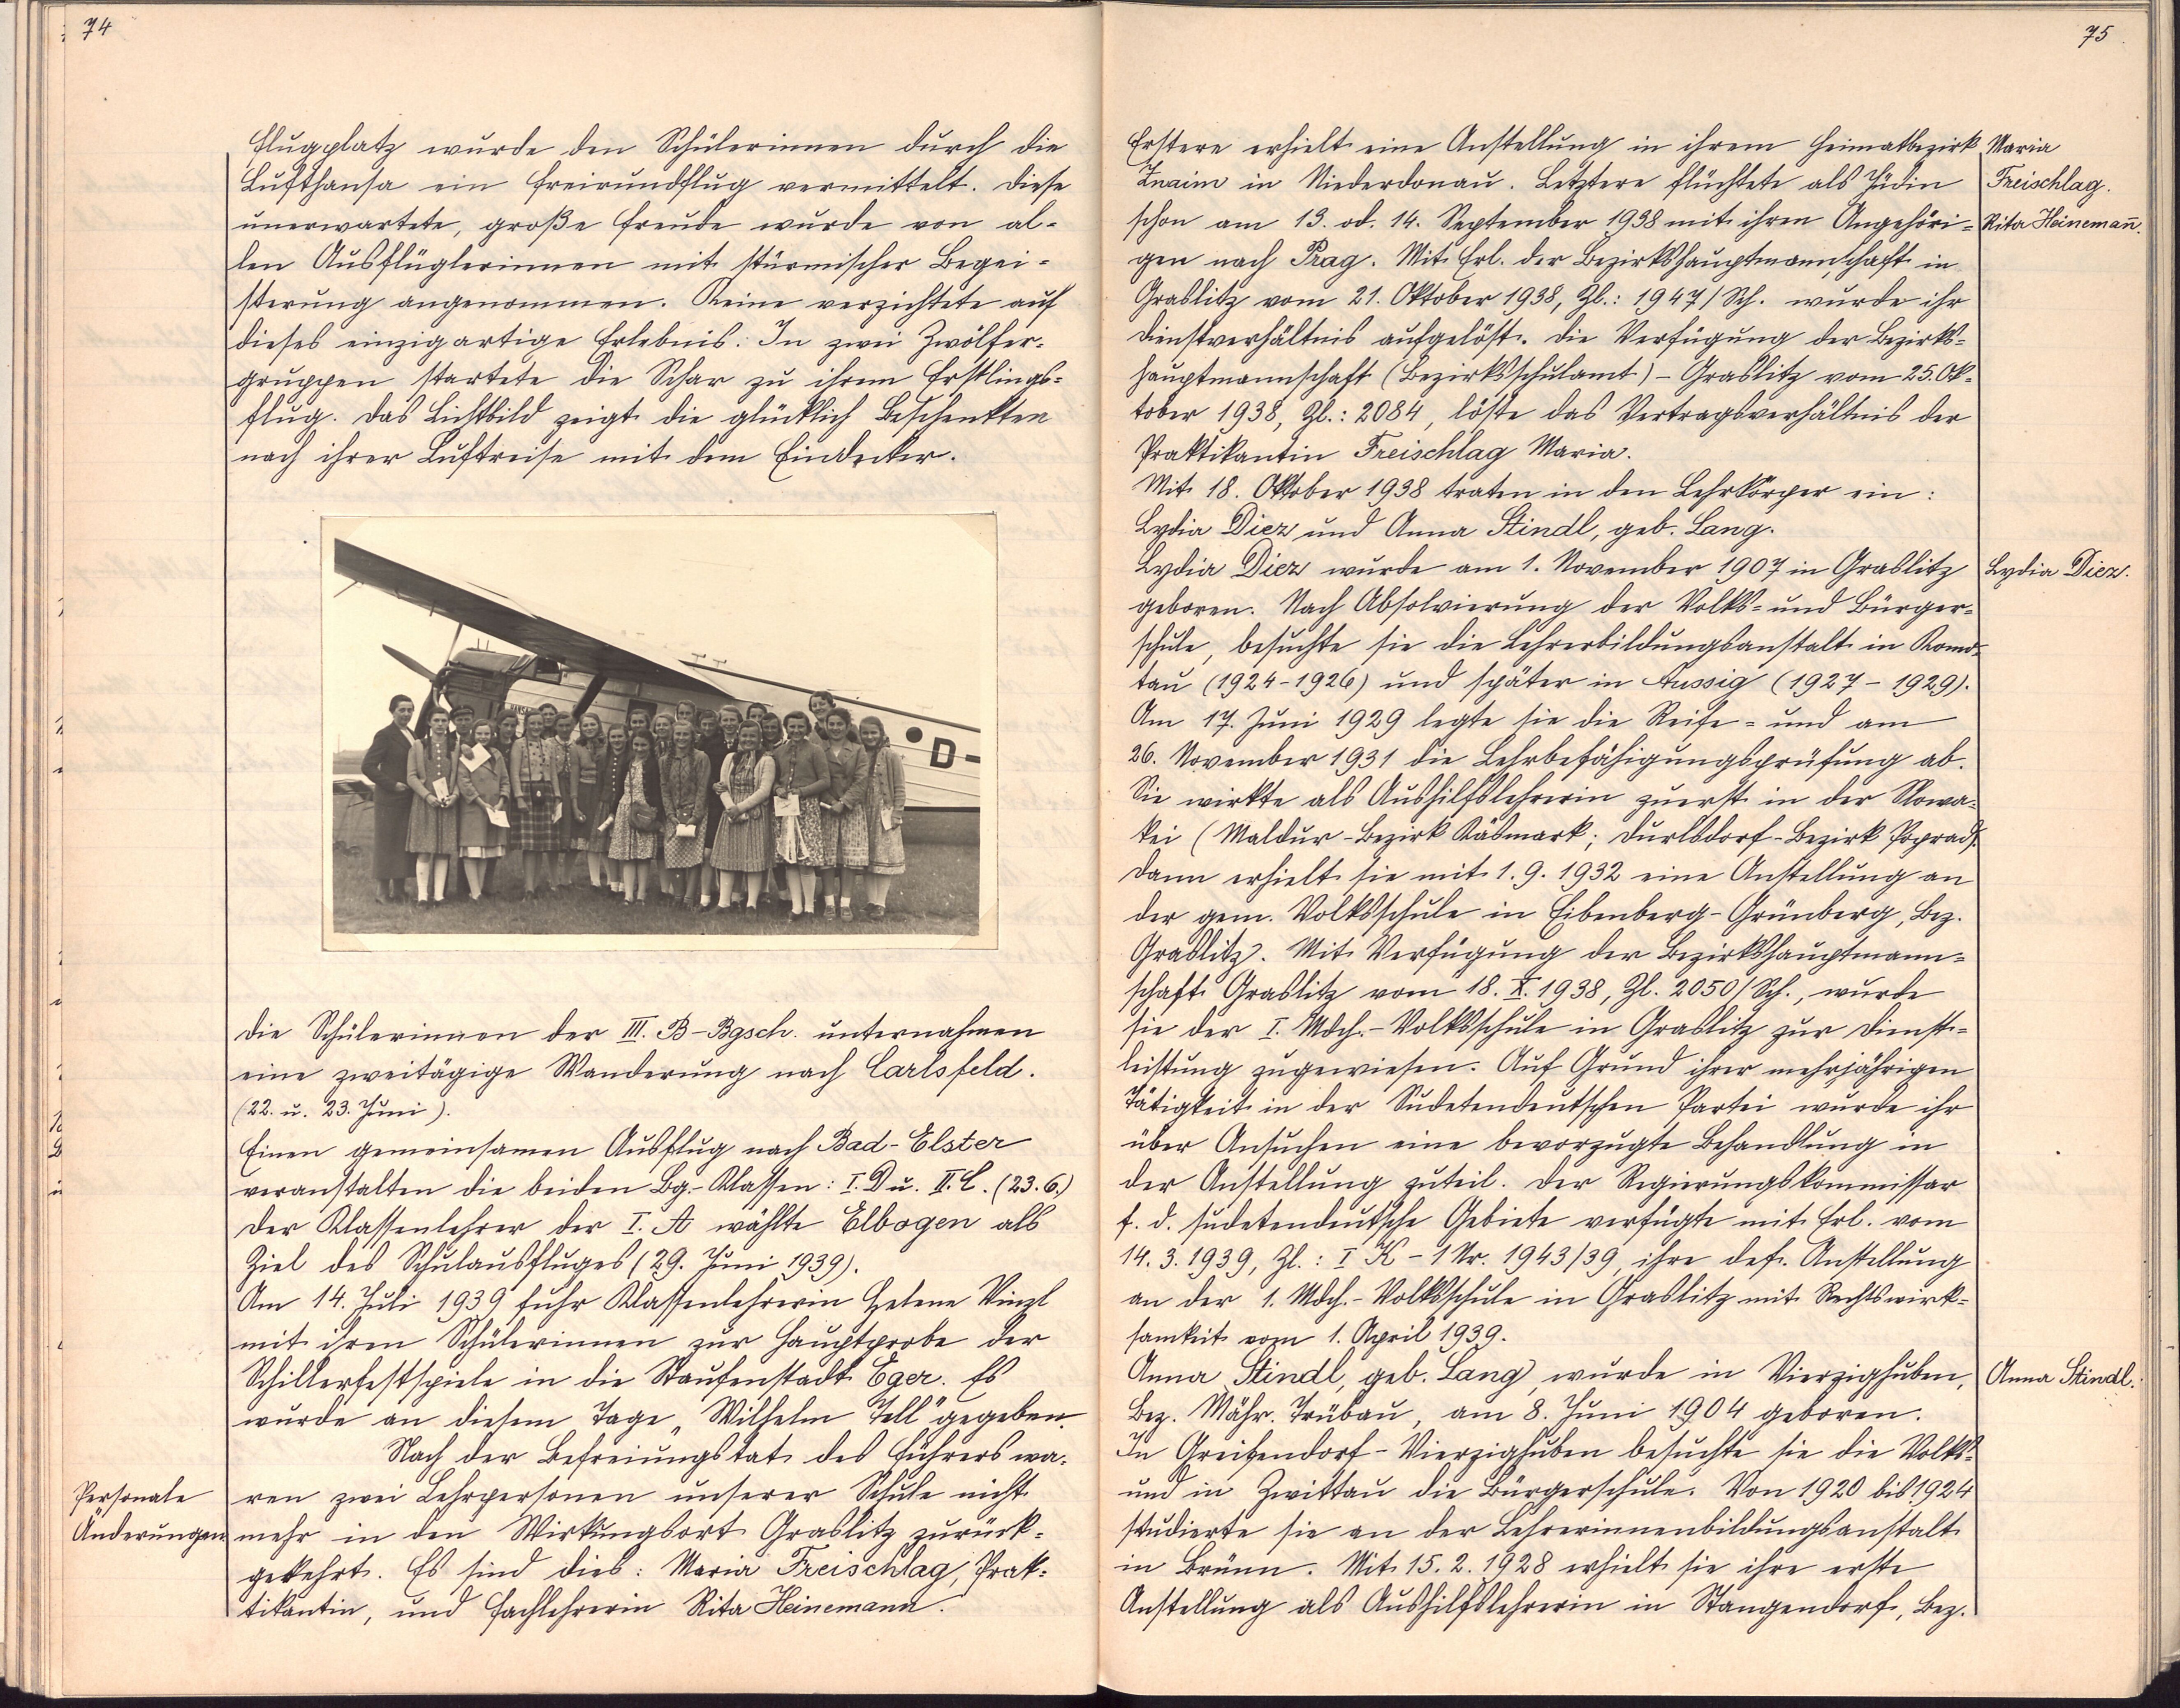 74
Flugplatz wurde den Schülerinnen durch die
Lufthansa ein Freirundflug vermittelt. Diese
unerwartete, große Freude wurde von al-
len Ausflüglerinnen mit stürmischer Begei-
sterung angenommen. Keine verzichtete auf
dieses einzigartige Erlebnis. In zwei Zwölfer-
gruppen startete die Schar zu ihrem Erstlings-
flug. Das Lichtbild zeigt die glücklich Beschenkten
nach ihrer Luftreise mit dem Eindecker.
D-
Die Schülerinnen der III. B-Bgsch. unternahmen
eine zweitägige Wanderung nach Carlsfeld.
(22. u. 23. Juni).
Einen gemeinsamen Ausflug nach Bad-Elster
veranstalten die beiden Bg.-Klassen: I. D u. II. C. (23. 6.)
Der Klassenlehrer der I. A wählte Elbogen als
Ziel des Schulausfluges (29. Juni 1939).
Am 14. Juli 1939 fuhr Klassenlehrerin Helene Vinzl
mit ihren Schülerinnen zur Hauptprobe der
Schillerfestspiele in die Staufenstadt Eger. Es
wurde an diesem Tage „Wilhelm Tell" gegeben.
Nach der Befreiungstat des Führers wa-
Personale
Änderungen
ren zwei Lehrpersonen unserer Schule nicht
mehr in den Wirkungsort Graslitz zurück-
gekehrt. Es sind dies: Maria Freischlag, Prak-
tikantin, und Fachlehrerin Rita Heinemann.
75
Erstere erhielt eine Anstellung in ihrem Heimatbezirk
Znaim in Niederdonau. Letztere flüchtete als Jüdin
schon am 13. od. 14. September 1938 mit ihren Angehöri-
Maria
Freischlag.
Rita Heinemañ.
gen nach Prag. Mit Erl. der Bezirkshauptmannschaft in
Graslitz vom 21. Oktober 1938, Zl.: 1947/Sch. wurde ihr
Dienstverhältnis aufgelöst. Die Verfügung der Bezirks-
hauptmannschaft (Bezirksschulamt) - Graslitz vom 25. Ok-
tober 1938, Zl.: 2084, löste das Vertragsverhältnis der
Praktikantin Freischlag Maria.
Mit 18. Oktober 1938 traten in den Lehrkörper ein:
Lydia Diez und Anna Stindl, geb. Lang.
Lydia Diez wurde am 1. November 1907 in Graslitz
Lydia Diez.
geboren. Nach Absolvierung der Volks- und Bürger-
schule, besuchte sie die Lehrerbildungsanstalt in Komo-
tau (1924-1926) und später in Aussig (1927-1929).
Am 17. Juni 1929 legte sie die Reife- und am
26. November 1931 die Lehrbefähigungsprüfung ab.
Sie wirkte als Aushilfslehrerin zuerst in der Slowa-
kei (Maldur-Bezirk Käsmark; Durlsdorf-Bezirk Poprad).
Dann erhielt sie mit 1. 9. 1932 eine Anstellung an
der gem. Volksschule in Eibenberg-Grünberg, Bez.
Graslitz. Mit Verfügung der Bezirkshauptmann-
schaft Graslitz vom 18. X. 1938, Zl. 2050/Sch., wurde
sie der I. Mdch.-Volksschule in Graslitz zur Dienst-
leistung zugewiesen. Auf Grund ihrer mehrjährigen
Tätigkeit in der Sudetendeutschen Partei wurde ihr
über Ansuchen eine bevorzugte Behandlung in
der Anstellung zuteil. Der Regierungskommissar
f. d. sudetendeutsche Gebiete verfügte mit Erl. vom
14. 3. 1939, Zl.: I K - 1 Nr. 1943/39, ihre def. Anstellung
an der 1. Mdch.-Volksschule in Graslitz mit Rechtswirk-
samkeit vom 1. April 1939.
Anna Stindl, geb. Lang, wurde in Vierzighuben,
Anna Stindl.
Bez. Mähr. Trübau, am 8. Juni 1904 geboren.
In Greifendorf-Vierzighuben besuchte sie die Volks-
und in Zwittau die Bürgerschule. Von 1920 bis 1924
studierte sie an der Lehrerinnenbildungsanstalt
in Brünn. Mit 15. 2. 1928 erhielt sie ihre erste
Anstellung als Aushilfslehrerin in Stangendorf, Bez.